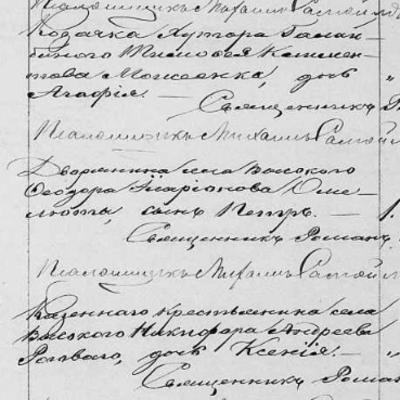 Псаломщикъ Михаилъ Самойл
Козачка Хутора Галаи-
биного Тимофея Климен-
това Моисеенка, дочь
Агафія. —
Священникъ Р
Псаломщикъ Михаилъ Самойл
Дворянина села Высокого
Феодора Иларіонова Оме-
люты, сынъ Петръ. — 1.
Священникъ Роман
Псаломщикъ Михаилъ Самойл
Казеннаго крестьянина села
Высокого Никифора Андреева
дочь Ксенія. — "
Священникъ Рома